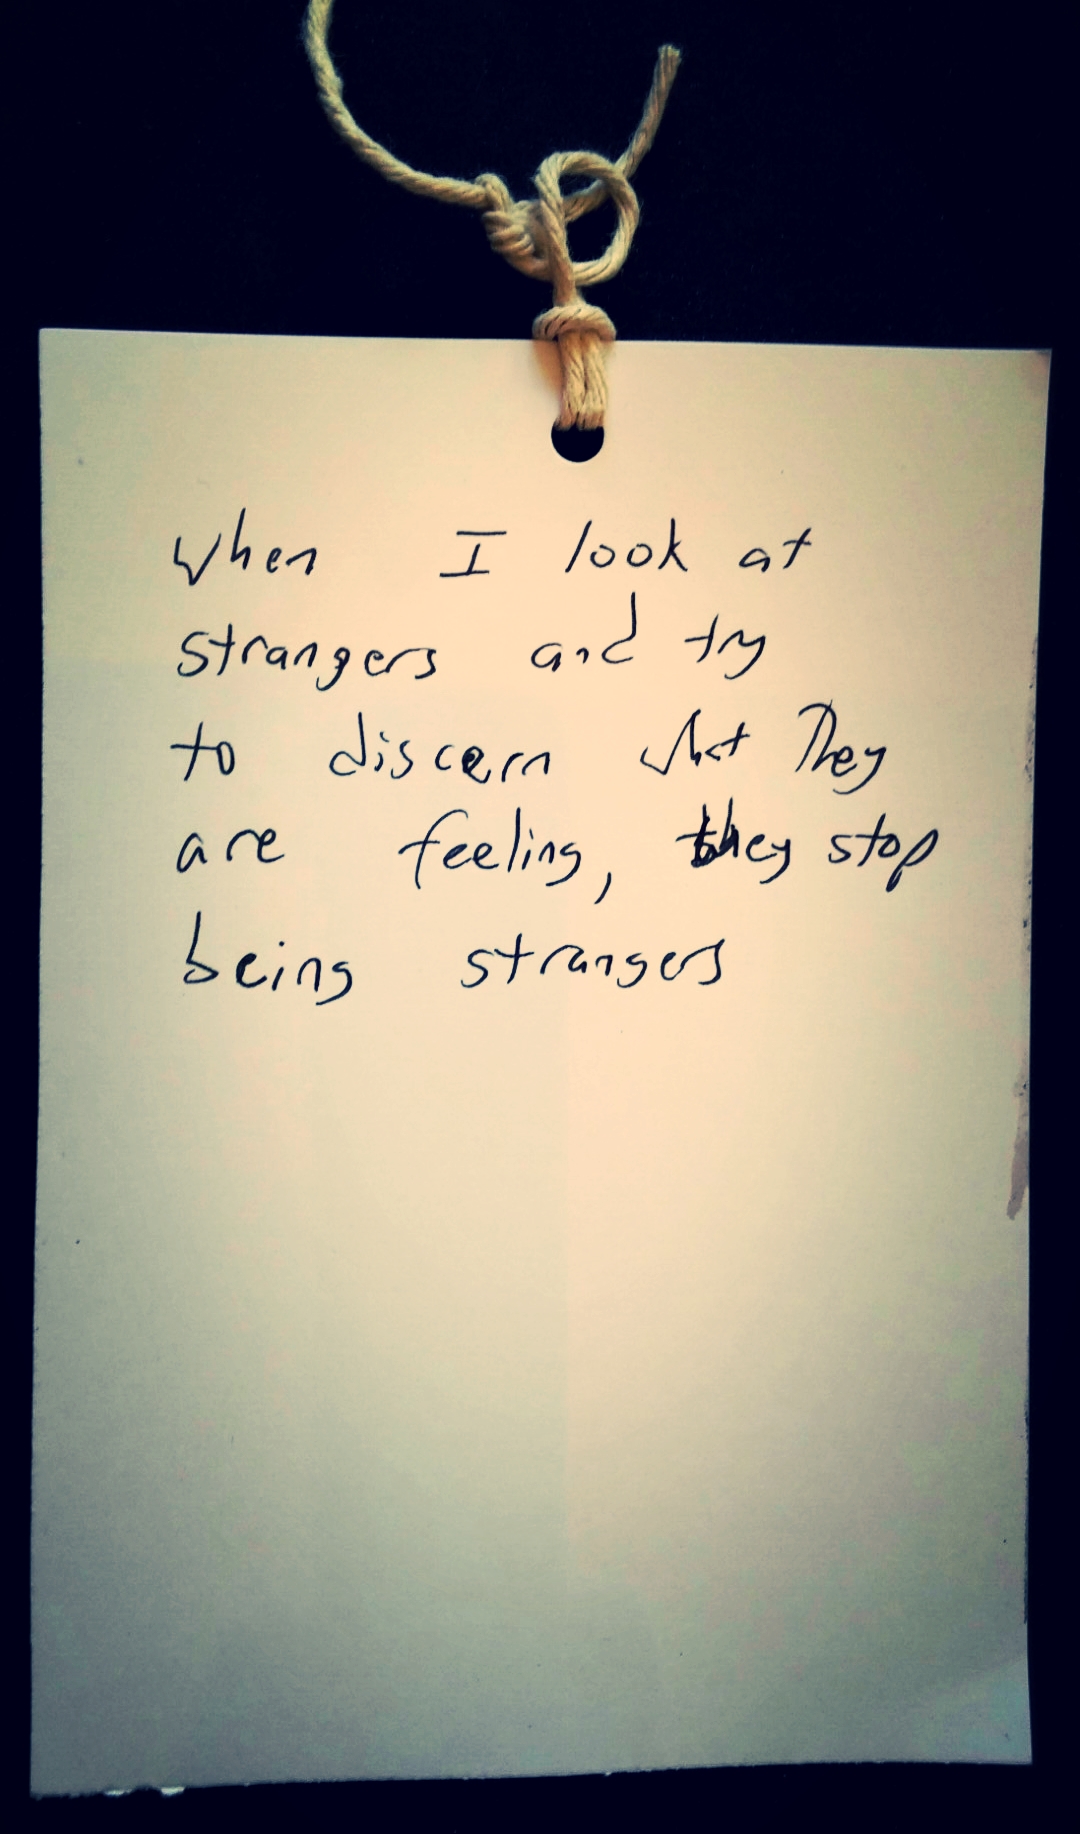 When I look at
strangers and try
to discern what They
are feeling, they stop
being strangers